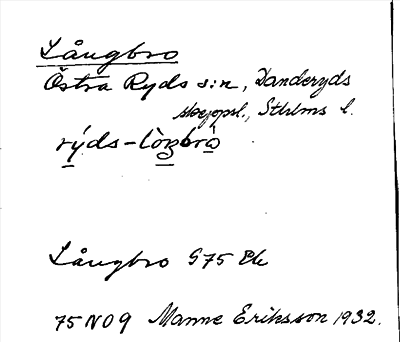 Långbro
Östra Ryds s:n, Danderyds
skeppsl., Sthlms l.
rýds-lòŋbrò
Långbro S75 Ek
75 N O 9 Manne Eriksson 1932.